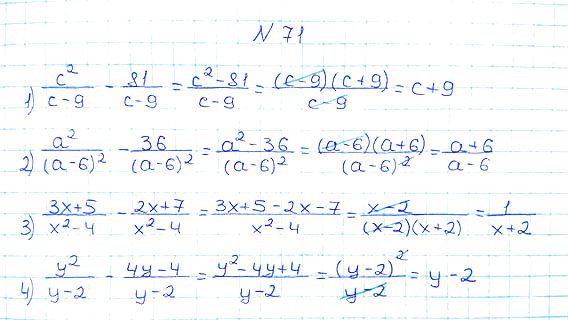 N 71
1) c²/(c-9) - 81/(c-9) = (c²-81)/(c-9) = (c-9)(c+9)/(c-9) = c+9
2) a²/(a-6)² - 36/(a-6)² = (a²-36)/(a-6)² = (a-6)(a+6)/(a-6)² = (a+6)/(a-6)
3) (3x+5)/(x²-4) - (2x+7)/(x²-4) = (3x+5-2x-7)/(x²-4) = (x-2)/((x-2)(x+2)) = 1/(x+2)
4) y²/(y-2) - (4y-4)/(y-2) = (y²-4y+4)/(y-2) = (y-2)²/(y-2) = y-2